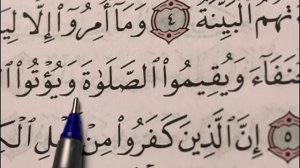 تْهُمُ ٱلْبَيِّنَةُ ٤ وَمَآ أُمِرُوٓا۟ إِلَّا لِيَ
نَفَآءَ وَيُقِيمُوا۟ ٱلصَّلَوٰةَ وَيُؤْتُوا۟
٥ إِنَّ ٱلَّذِينَ كَفَرُوا۟ مِنْ أَهْلِ ٱلْكِ